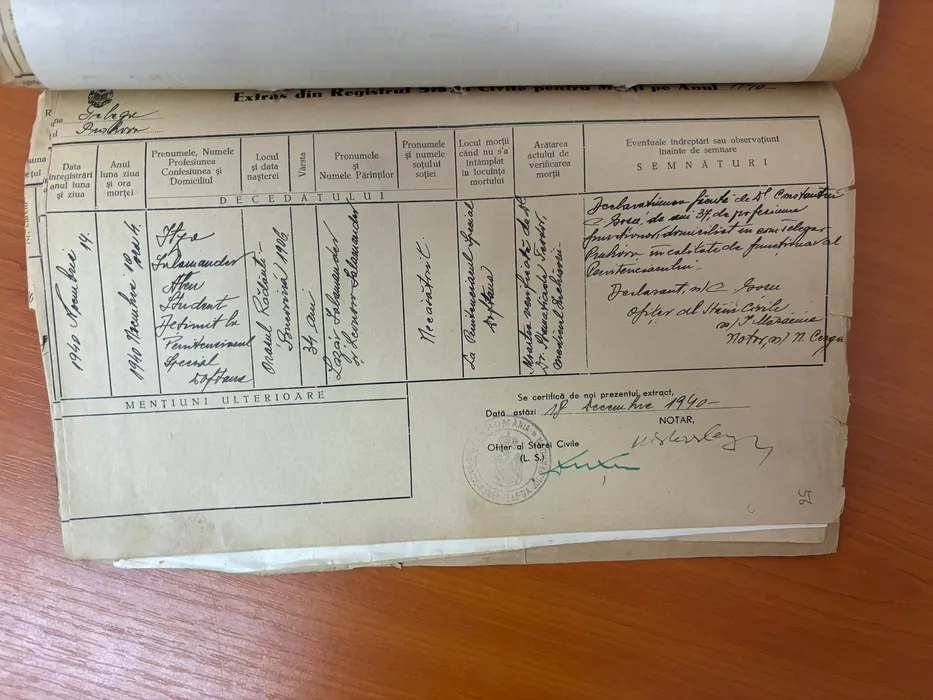 Extras din Registrul Stării Civile pentru Morți pe Anul 1940
Telega
Prahova
Data
înregistrări
anul luna
și ziua
Anul
luna ziua
și ora
morței
Prenumele, Numele
Profesiunea
Confesiunea și
Domiciliul
Locul
și data
nașterei
Vârsta
Pronumele
și
Numele Părinților
Pronumele
și numele
soțului
soției
Locul morții
când nu s'a
întâmplat
la locuința
mortului
Arătarea
actului de
verificarea
morții
Eventuale îndreptări sau observațiuni
înainte de semnare
SEMNĂTURI
DECEDATULUI
1940 Noembrie 14.
1940 Noembrie 10
Ilya
Salamander
Ateu
Student
Deținut la
Penitenciarul
Special
Doftana
Orașul Rădăuți-
Bucovina 1906
34, ani
Lazăr Salamander
și Salamander
Necăsătorit
La Penitenciarul Special
Doftana
Moartea verificată de
Dr. Teodor,
medicul Închisorii
Declarațiunea făcută de Dl. Constantin
de ani 37, de profesiune
funcționar, domiciliat în com. Telega
Prahova, în calitate de funcționar al
Penitenciarului.
Declarant,
Ofițer al Stării Civile
Notar,
MENȚIUNI ULTERIOARE
Se certifică de noi prezentul extract,
Dată astăzi 18 Decembrie 1940
NOTAR,
Ofițer al Stărei Civile
(L. S.)
ROMÂNIA
TELEGA
56